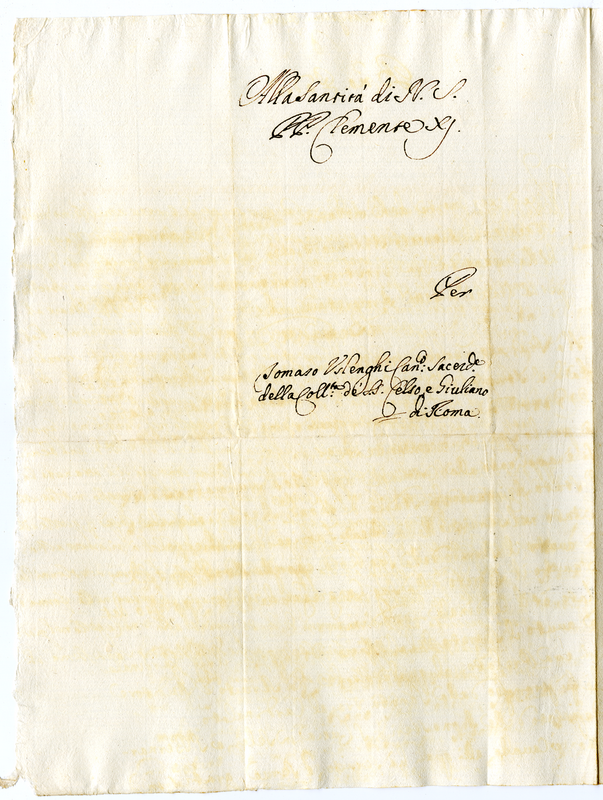 Alla Santità di N. S.
PP. Clemente XJ.
Per
Tomaso Uslenghi Can.o Sacerd.e
della Coll.ta de' SS. Celso, e Giuliano
di Roma.